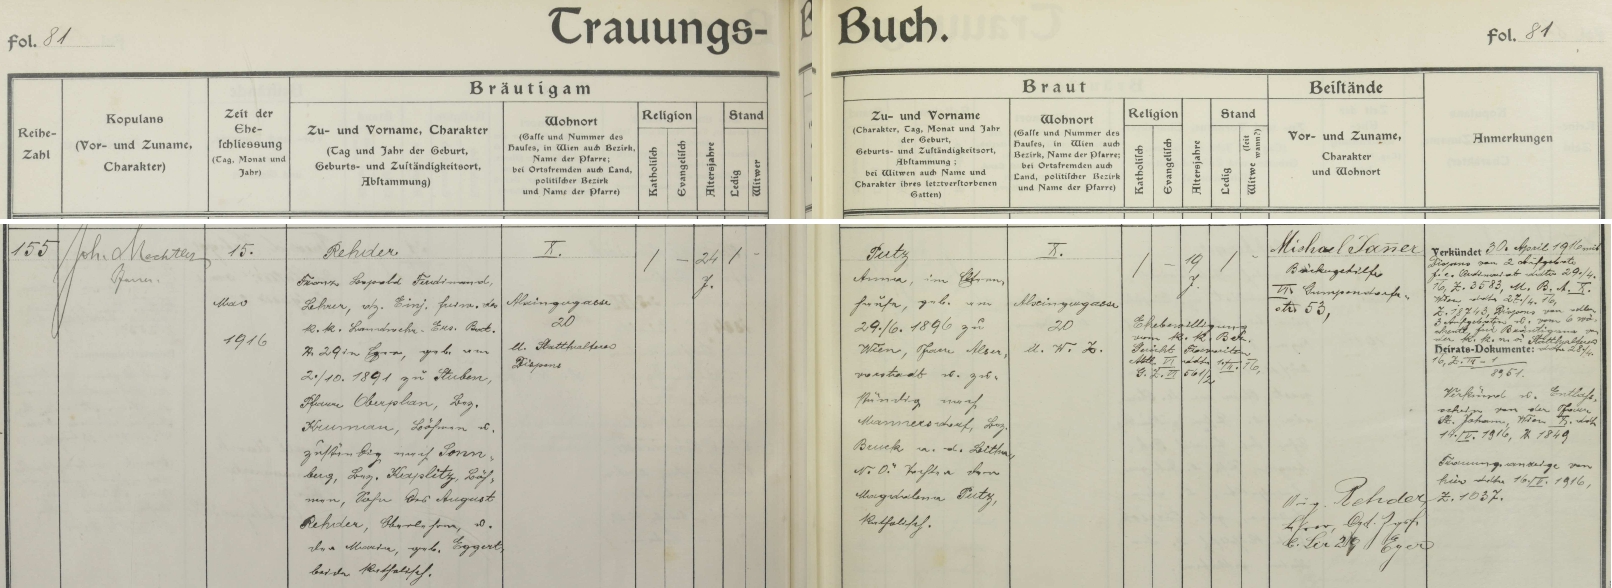 fol. 81
Trauungs-
Buch.
fol. 81
Reihe-
Zahl
Kopulans
(Vor- und Zuname,
Charakter)
Zeit der
Ehe-
schliessung
(Tag, Monat und
Jahr)
Bräutigam
Zu- und Vorname, Charakter
(Tag und Jahr der Geburt,
Geburts- und Zuständigkeitsort,
Abstammung)
Wohnort
(Gasse und Nummer des
Hauses, in Wien auch Bezirk,
Name der Pfarre;
bei Ortsfremden auch Land,
politischer Bezirk
und Name der Pfarre)
Religion
Katholisch
Evangelisch
Altersjahre
Stand
Ledig
Witwer
Braut
Zu- und Vorname
(Charakter, Tag, Monat und Jahr
der Geburt,
Geburts- und Zuständigkeitsort,
Abstammung;
bei Witwen auch Name und
Charakter ihres letztverstorbenen
Gatten)
Wohnort
(Gasse und Nummer des
Hauses, in Wien auch Bezirk,
Name der Pfarre;
bei Ortsfremden auch Land,
politischer Bezirk
und Name der Pfarre)
Religion
Katholisch
Evangelisch
Altersjahre
Stand
Ledig
Witwe (seit wann?)
Beistände
Vor- und Zuname,
Charakter
und Wohnort
Anmerkungen
155
Joh. Mechtler
Pfarrer.
15.
Mai
1916
Rehder
Franz Leopold Ferdinand,
Lehrer, Einj. freiw. des
k. k. Landwehr-Ers. Bat.
№ 29 in Eger, geb. am
2./10. 1891 zu Stuben,
Pfarre Oberplan, Bez.
Krumau, Böhmen u.
zuständig nach Sonn-
berg, Bez. Kaplitz, Böh-
men, Sohn des August
Rehder, Oberlehrer, u.
der Maria, geb. Eggert,
beide katholisch.
X.
Alxingergasse
20
u. Statthalterei
Dispens
/
–
24
J.
/
-
Putz
Anna, geb. am
29./6. 1896 zu
Wien, Pfarre Alser-
vorstadt u. zu-
ständig nach
Mannersdorf, Bez.
Bruck a. d. Leitha,
N. Ö. Tochter der
Magdalena Putz,
katholisch.
X.
Alxingergasse
20
u. W. Z.
/
-
19
J.
/
-
Ehebewilligung
vom k. k. Bez.
Gericht Favoriten
Michael Janner
Bäckergehilfe
VI. Gumpendorfer-
str. 53,
Aug. Rehder,
Lehrer,
Eger
Verkündet 30. April 1916 mit
Dispens von 2 Aufgebote
16, Z. 3583, M. B. A. X.
Wien, 27./4. 16,
Z. 18743, Dispens von
der k. k. n. ö. Statthalterei
Heirats-Dokumente: 28/4.
8951.
Verkünd u. Entlaß-
schein von der Pfarre
St. Johann, Wien X.
14./V. 1916, № 1849
Trauungsanzeige von
hier 16./V. 1916,
Z. 1037.